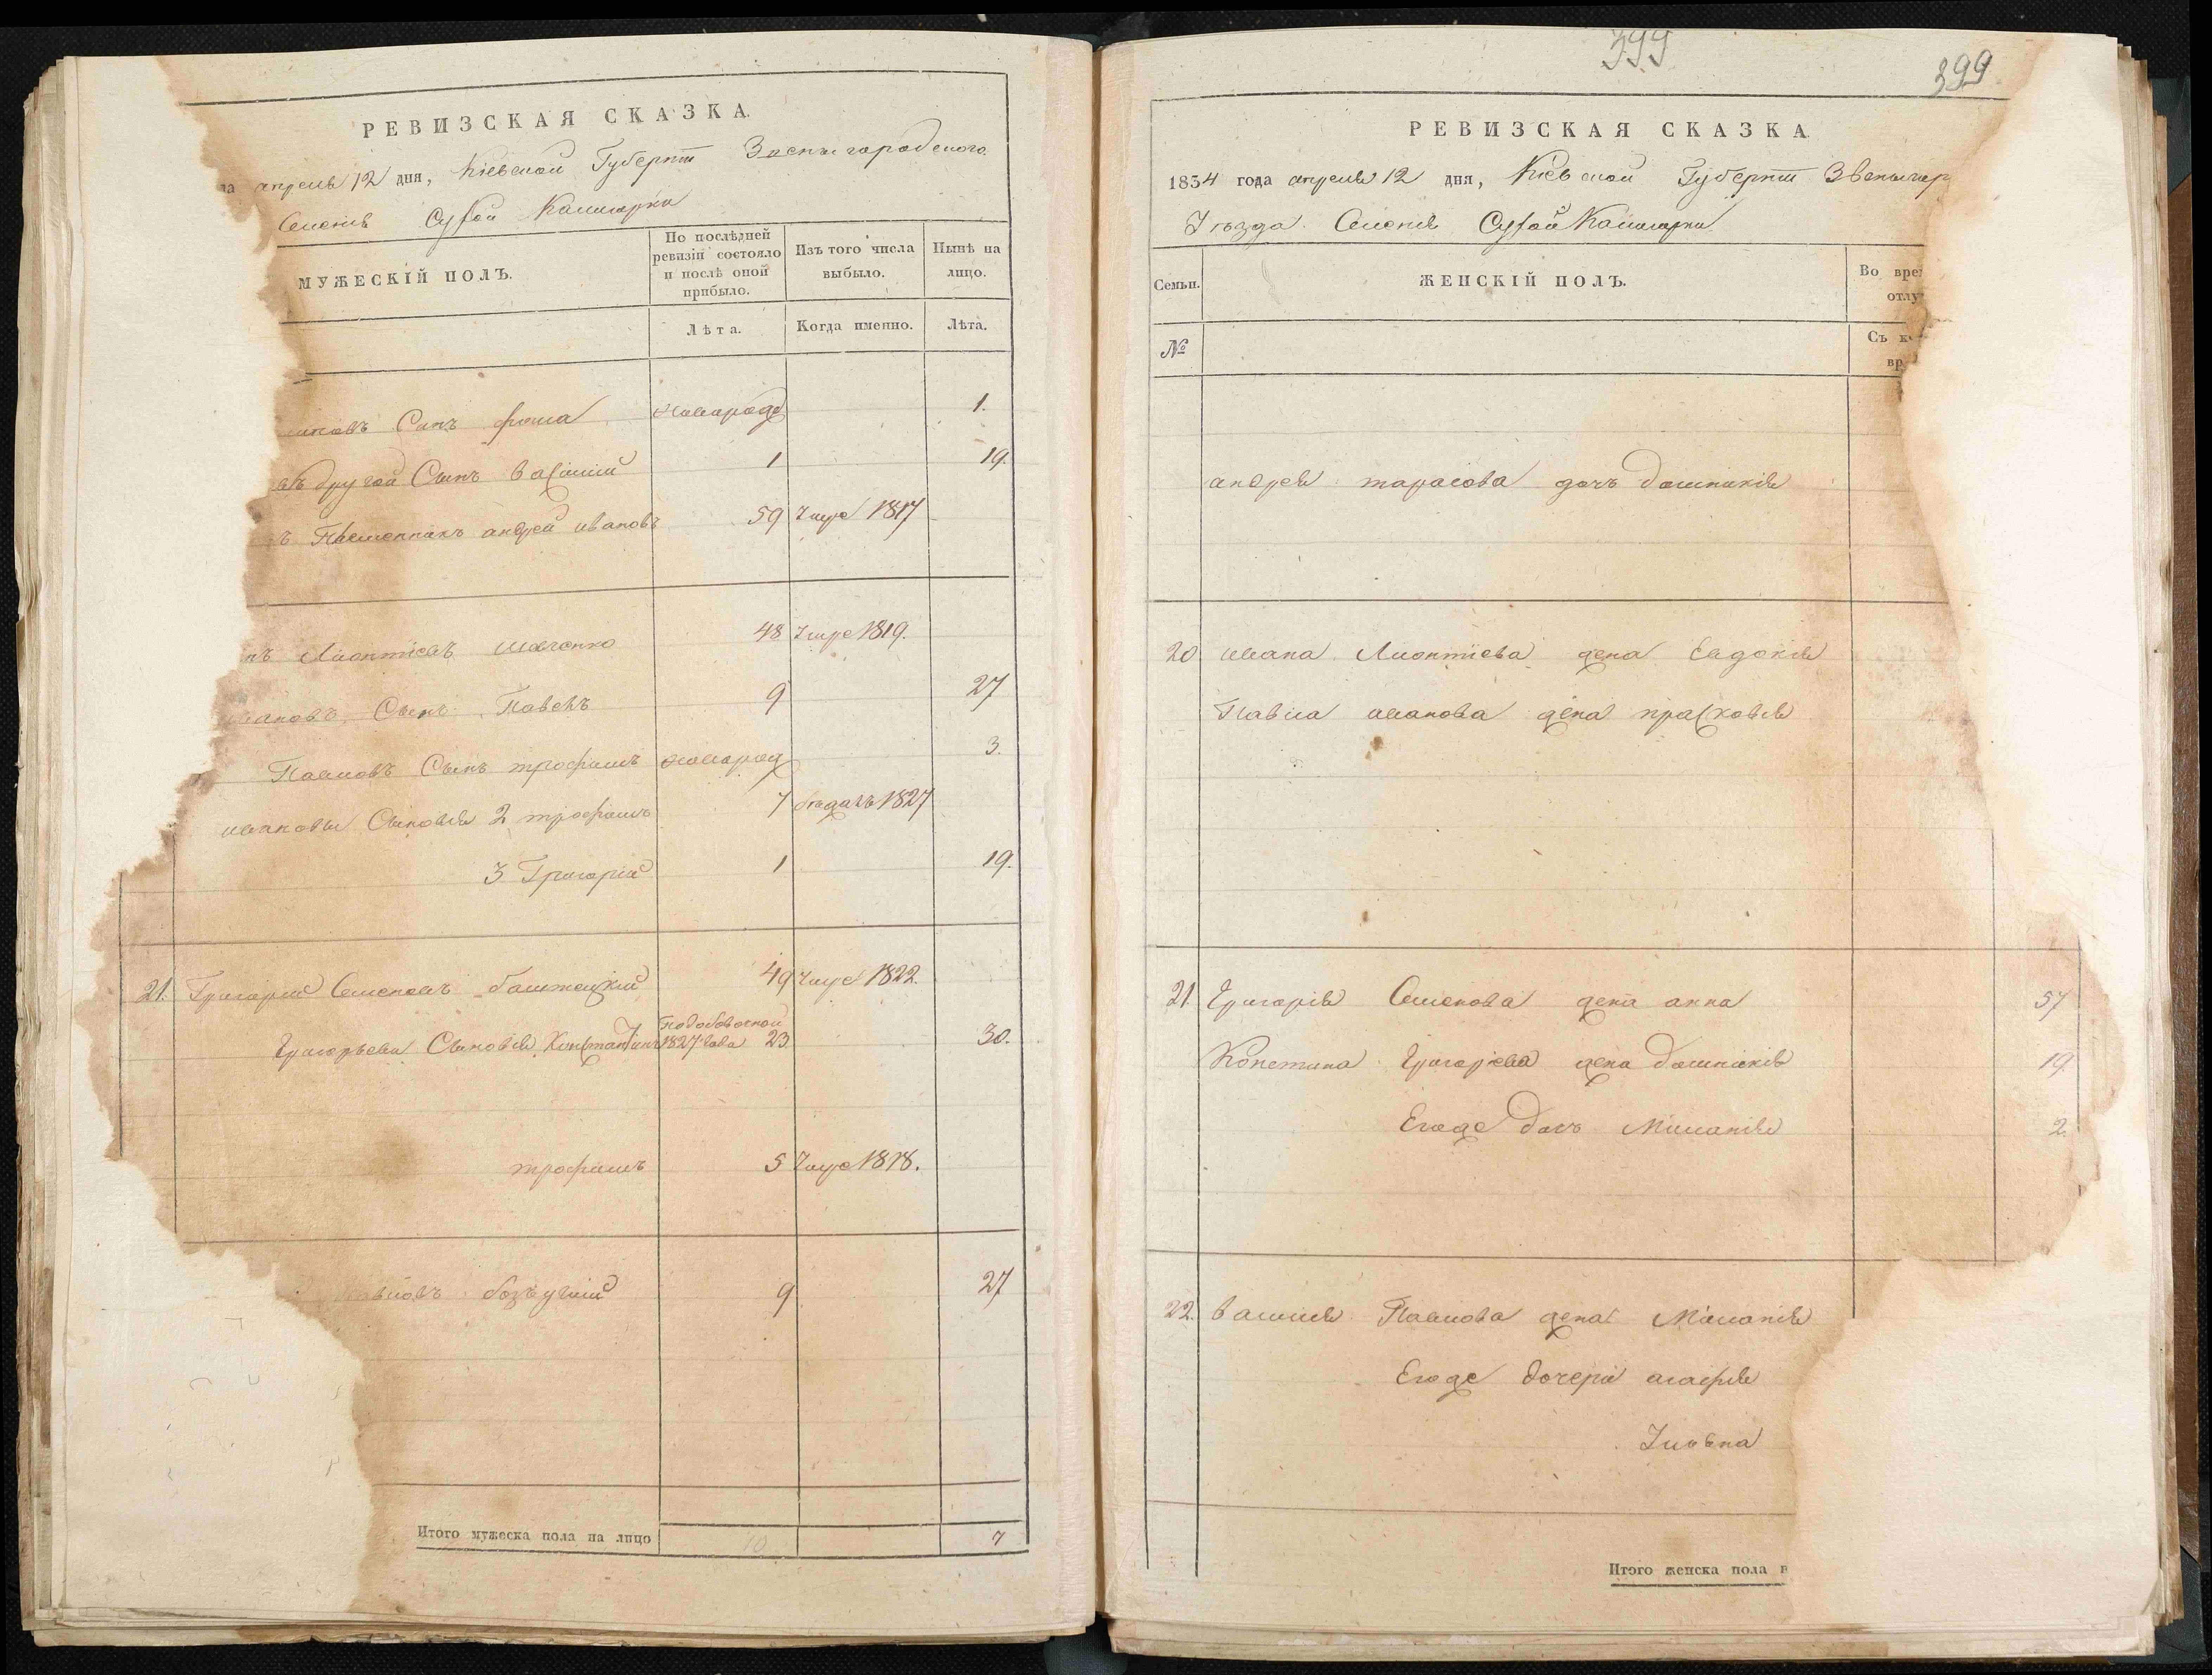 РЕВИЗСКАЯ СКАЗКА.
апреля 12 дня, Кіевской Губерніи Звенигородского
Селенія Сухой Калигорки
МУЖЕСКІЙ ПОЛЪ.
По послѣдней ревизіи состояло и послѣ оной прибыло.
Изъ того числа выбыло.
Нынѣ на лицо.
Лѣта.
Когда именно.
Лѣта.
Сынъ фома новарожде 1.
другой Сынъ василий 1 19.
Племенникъ андрей ивановъ 59 умре 1817
Лионтиевъ Шевченко 48 умре 1819.
ивановъ Сынъ Павелъ 9 27
Павловъ Сынъ трофимъ новарож 3.
ивановы Сыновья 2 трофимъ 7 1827
3 Григорій 1 19.
21. Григорий Семеновъ 49 умре 1822.
Григорьевы Сыновья Константинъ 1827 года 23 30.
трофимъ 5 умре 1818.
9 27
Итого мужеска пола на лицо 10 7
399
399
РЕВИЗСКАЯ СКАЗКА.
1834 года апреля 12 дня, Кіевской Губерніи Звенигор
Уезда Селенія Сухой Калигорки
Семьи.
ЖЕНСКІЙ ПОЛЪ.
Во вре
отлу
№
Съ к
вр
андрея тарасова дочь домникія
20 ивана Лионтиева жена Евдокія
Павла иванова жена прасковія
21. Григорія Семенова жена анна 57
Констина Григорієва жена домникія 19.
Егоже дочь Миланія 2.
22. василия Павлова жена Миланія
Егоже дочери агафія
Итого женска пола н